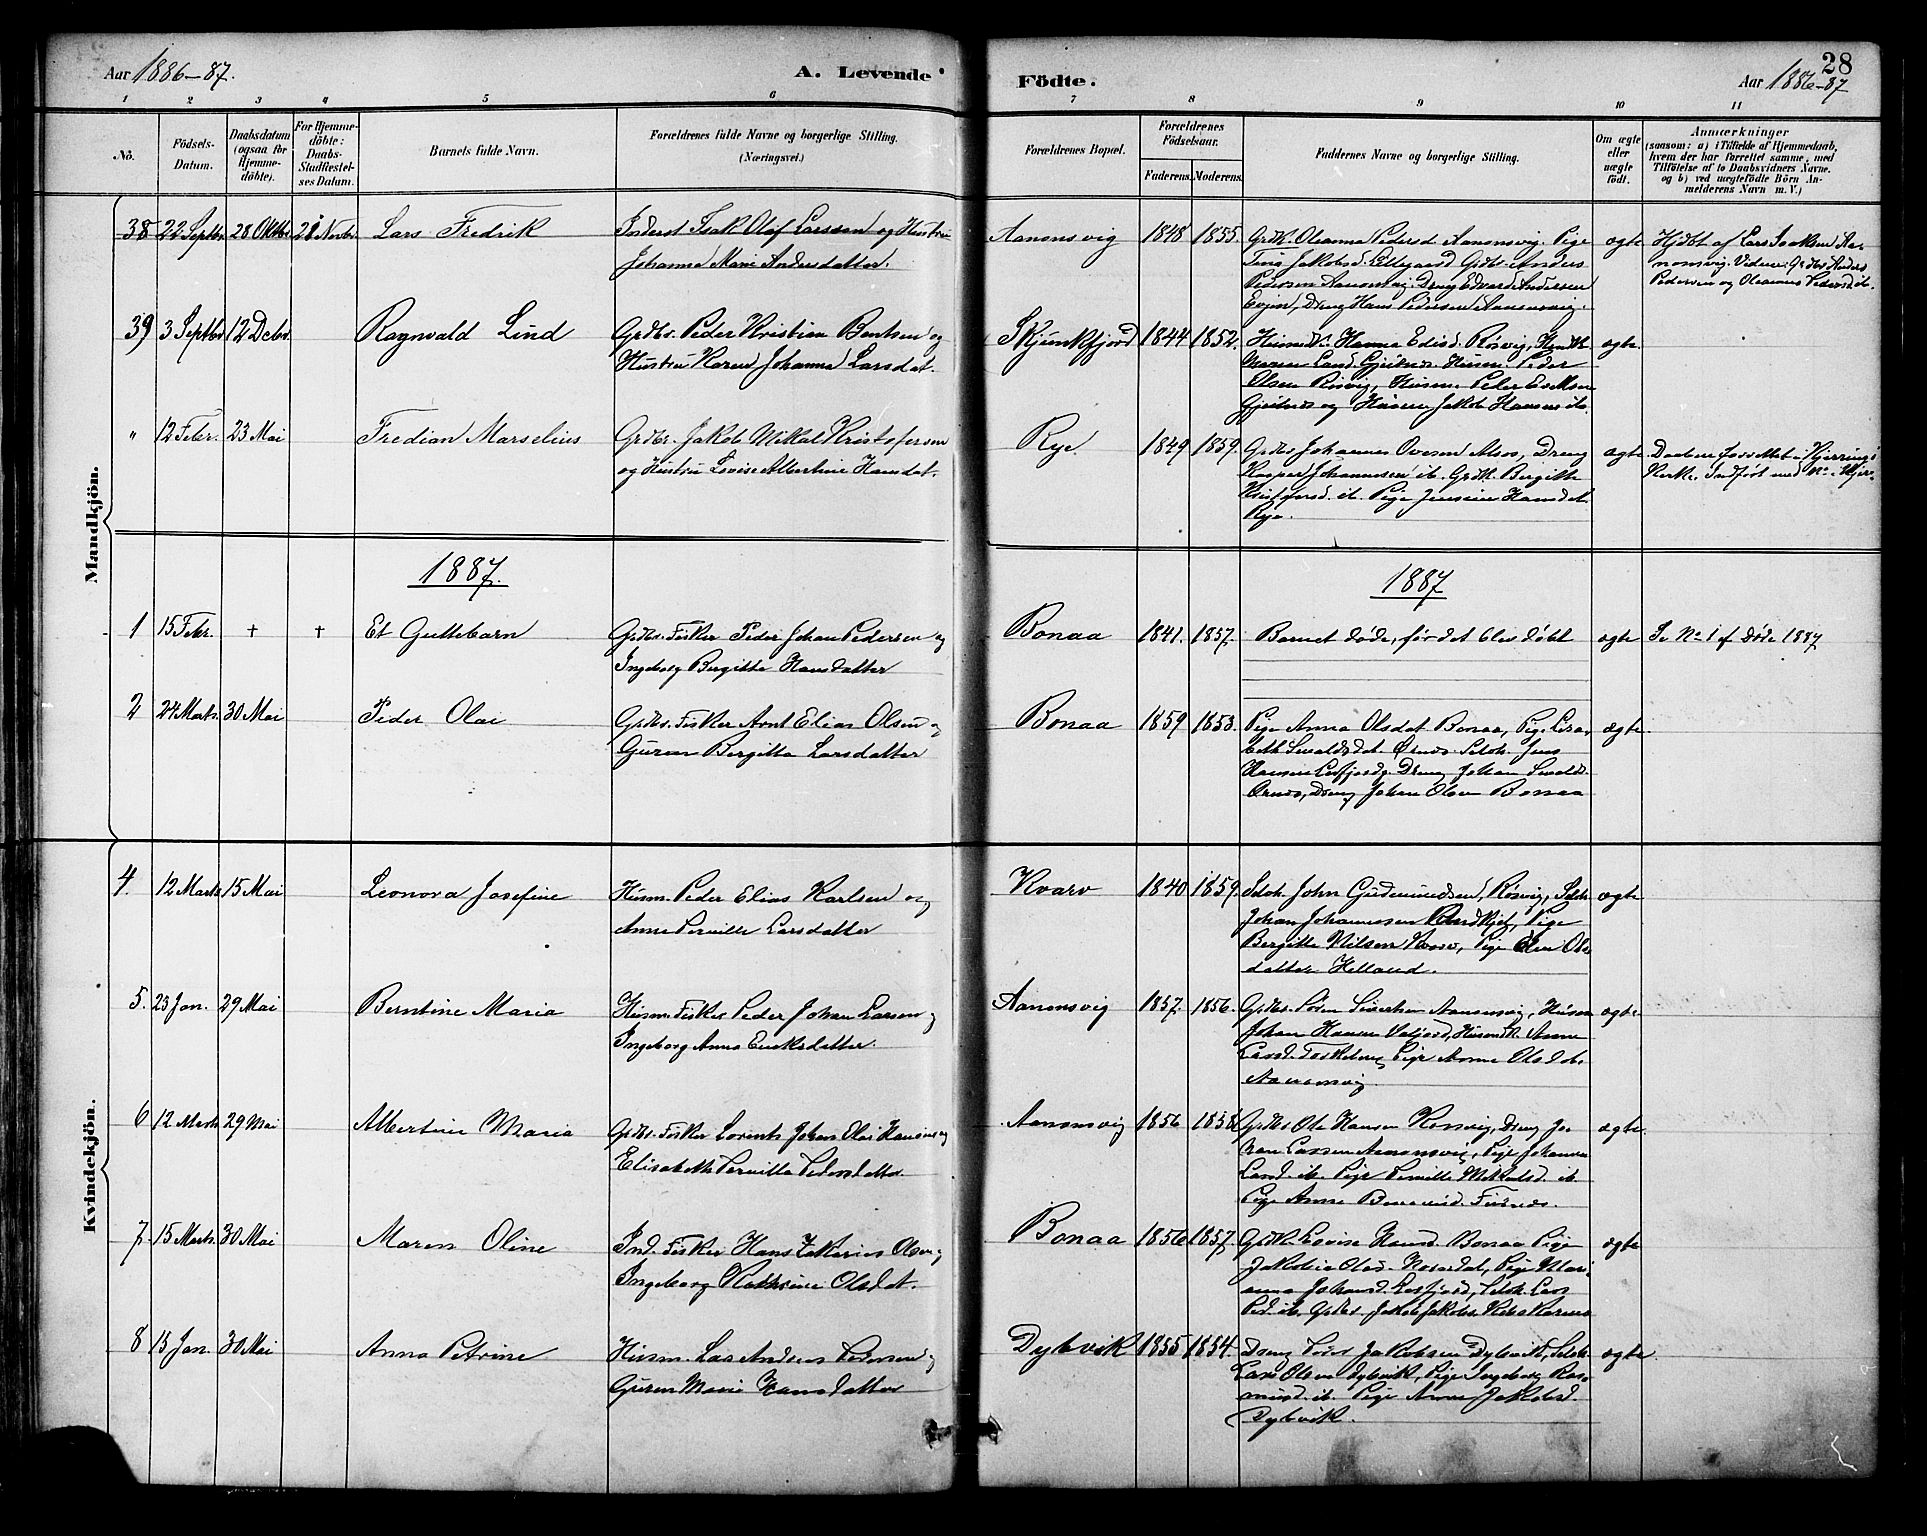 Aar 1886-87. A. Levende
Födte. 28
Aar 1886-87
1 2 3 4 5 6 7 8 9 10 11
No.
Födsels-
Datum.
Daabsdatum
(ogsaa for
Hjemme-
döbte).
For Hjemme-
döbte:
Daabs-
Stadfæstel-
ses Datum.
Barnets fulde Navn.
Forældrenes fulde Navne og borgerlige Stilling.
(Næringsvei.)
Forældrenes Bopæl.
Forældrenes
Födselsaar.
Faderens. Moderens.
Faddernes Navne og borgerlige Stilling.
Om ægte
eller
uægte
födt.
Anmærkninger
(saasom: a) i Tilfælde af Hjemmedaab,
hvem der har forrettet samme, med
Tilföielse af to Daabsvidners Navne.
og b) ved uægtefödte Börn An-
melderens Navn m. V.)
Mandkjön.
38 22 Septbr 28 Oktbr 21 Novbr Lars Fredrik Inderst Isak Olaf Larssen og Hustru
Johanna Marie Andersdatter.
Aanonsvig 1848 1855. Grdk. Oleanna Pedersd Aanonsvig. Pige
Tina Jakobsd. Grdbr Anders
Pedersen Aanonsvig. Dreng Edvard Andersen
Evjen, Dreng Hans Pedersen Aanonsvig.
ægte
Hjdbt af Lars Isaksen Aa-
nonsvig. Vidner: Grdbr Anders
Pedersen og Oleanna Pedersd ib.
39 3 Septbr 12 Decbr. Ragnvald Lund Grdbr. Peder Kristian Bentsen og
Hustru Karen Johanna Larsdat.
Skjunkfjord 1844 1852. Hanna Rösvig,
Husm. Peder
Olsen Rösvig, Husm. Peter
Gjeitnes og Husm Jakob Hansen ib.
ægte.
" 12 Febr. 23 Mai Fredian Marselius Grdbr. Jakob Mikal Kristofersen
og Hustru Lovise Albertine Hansdat.
Rye 1849 1859. Grdbr Johannes Dreng
Kasper Johannessen ib. Grdk. Birgitte
Kristofersd. ib. Pige Jensine Hansdat
Rye.
ægte
1887. 1887
1 15 Febr. + + Et Guttebarn Grdbr. Fisker Peder Johan Pedersen og
Ingeborg Bergitte Hansdatter
Bonaa 1841. 1857. Barnet døde, før det blev døbt ægte Se No 1 af Døde 1887
2 24 Marts 30 Mai Peder Olai Grdbr. Fisker Arnt Elias Olsen og
Guren Bergitta Larsdatter
Bonaa 1859 1853. Pige Anna Olsdat Bonaa, Pige Lisa-
beth Ørnes. Seldk. Jens
Hansen Dreng Johan
Dreng Johan Olsen Bonaa
ægte
Kvindekjön.
4. 12 Marts 15 Mai Leonora Josefine Husm. Peder Elias Karlsen og
Anne Pernille Larsdatter
Kvarv 1840 1859. Seldk. John Gudmundsen, Rösvig, Seldk
Johan Johannessen Pige
Bergitte Nilsen Pige Ols-
datter Helland.
ægte
5. 23 Jan. 29 Mai Berntine Maria Husm. Fisker Peder Johan Larsen og
Ingeborg Anna Eriksdatter.
Aanonsvig 1857. 1856. Grdbr. Sören Sivertsen Aanonsvig, Husm
Johan Hansen Husmk. Anne
Larsd. Pige Anne Olsdat.
Aanonsvig
ægte
6 12 Marts 29 Mai Albertine Maria Grdbr. Fisker Lorents Johan Olai Hansen og
Elisabeth Pernilla Pedersdatter
Aanonsvig 1856 1858 Grdbr Ole Hansen Rosvig, Dreng Jo-
han Larsen Aanonsvig, Pige Johanna
Larsd. ib. Pige Pernille Mikalsd. ib
Pige Anne
ægte.
7. 15 Marts 30 Mai Maren Oline Ind. Fisker Hans Zakarias Olsen og
Ingeborg Kathrine Olsdat.
Bonaa 1856 1857. Grdk. Lovise Hansd. Bonaa Pige
Olsd. Pige Mari-
anna Johansd. Seldk. Lars
Ped. ib.
ægte
8 15 Jan. 30 Mai Anna Petrine Husm. Lars Andreas Pedersen og
Guren Marie Hansdatter
Dybvik 1855 1854. Dreng Peder Jakobsen Dybvik, Seldk
Lars Olsen Dybvik, Pige Ingeborg Ras-
musd. ib. Pige Anne Jakobsd.
Dybvik.
ægte